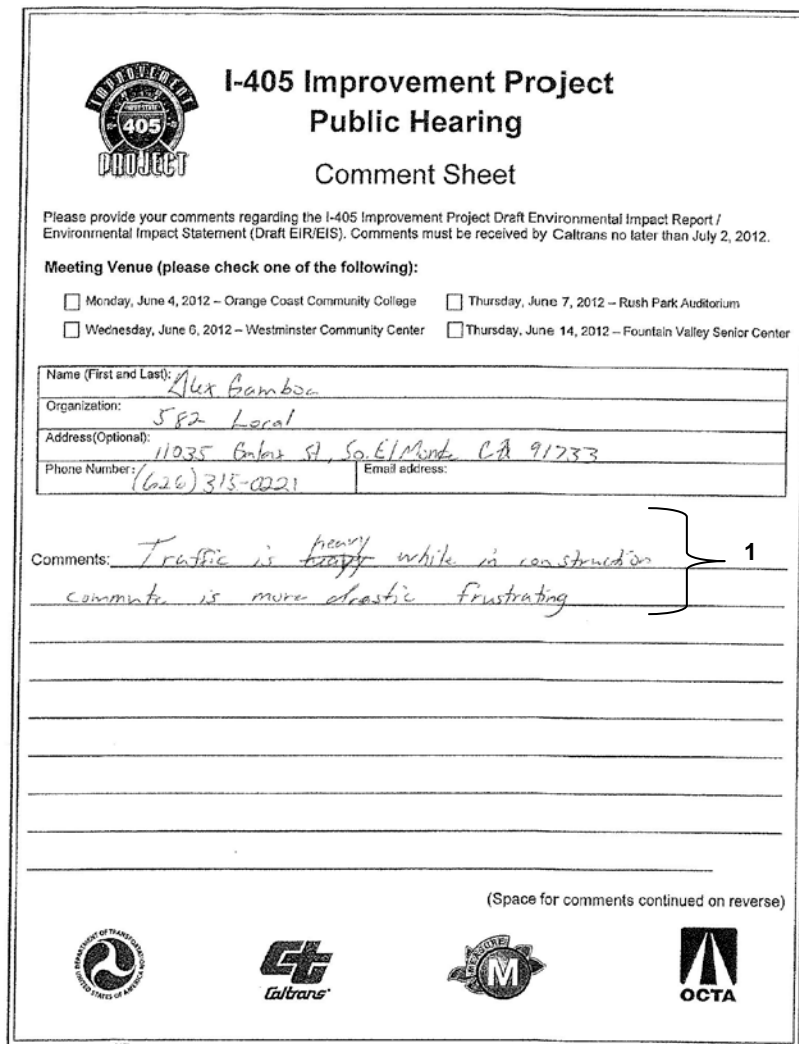 IMPROVEMENT
INTERSTATE
405
PROJECT
I-405 Improvement Project
Public Hearing
Comment Sheet
Please provide your comments regarding the I-405 Improvement Project Draft Environmental Impact Report /
Environmental Impact Statement (Draft EIR/EIS). Comments must be received by Caltrans no later than July 2, 2012.
Meeting Venue (please check one of the following):
Monday, June 4, 2012 – Orange Coast Community College
Thursday, June 7, 2012 – Rush Park Auditorium
Wednesday, June 6, 2012 – Westminster Community Center
Thursday, June 14, 2012 – Fountain Valley Senior Center
Name (First and Last): Alex Gamboa
Organization: 582 Local
Address(Optional): 11035 St, So. El Monte CA 91733
Phone Number: (626) 315-0221
Email address:
Comments: Traffic is heavy while in construction
commute is more drastic frustrating
1
(Space for comments continued on reverse)
DEPARTMENT OF TRANSPORTATION
UNITED STATES OF AMERICA
Caltrans
MEASURE
M
OCTA